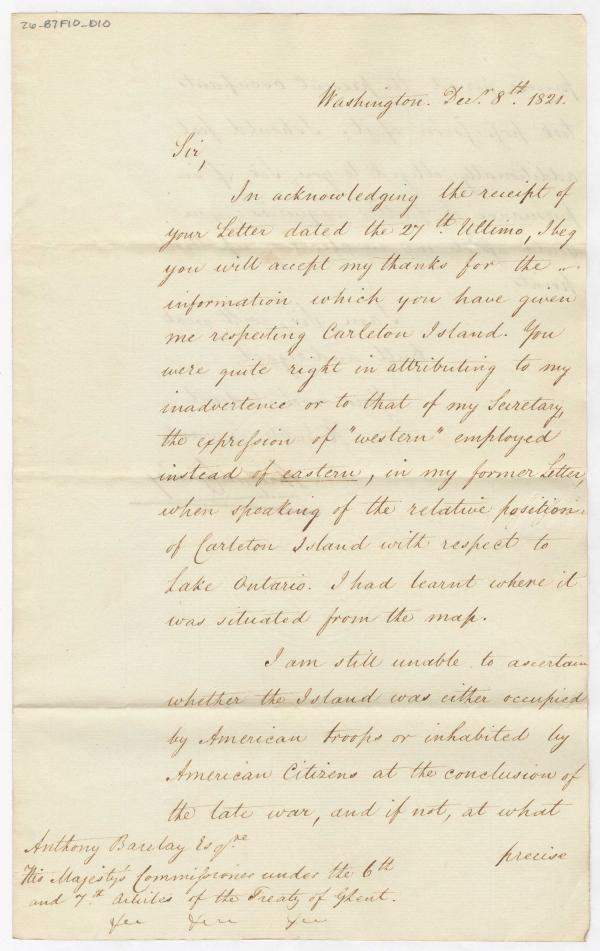 26-B7F10-D10
Washington. Decr. 8th. 1821.
Sir,
In acknowledging the receipt of
your Letter dated the 27th. Ultimo, I beg
you will accept my thanks for the
information which you have given
me respecting Carleton Island. You
were quite right in attributing to my
inadvertence or to that of my Secretary,
the expression of "western" employed
instead of eastern, in my former Letter,
when speaking of the relative position
of Carleton Island with respect to
Lake Ontario. I had learnt where it
was situated from the map.
I am still unable to ascertain
whether the Island was either occupied
by American troops or inhabited by
American Citizens at the conclusion of
the late war, and if not, at what
precise
Anthony Barclay Esqre.
His Majesty's Commissioner under the 6th
and 7th Articles of the Treaty of Ghent.